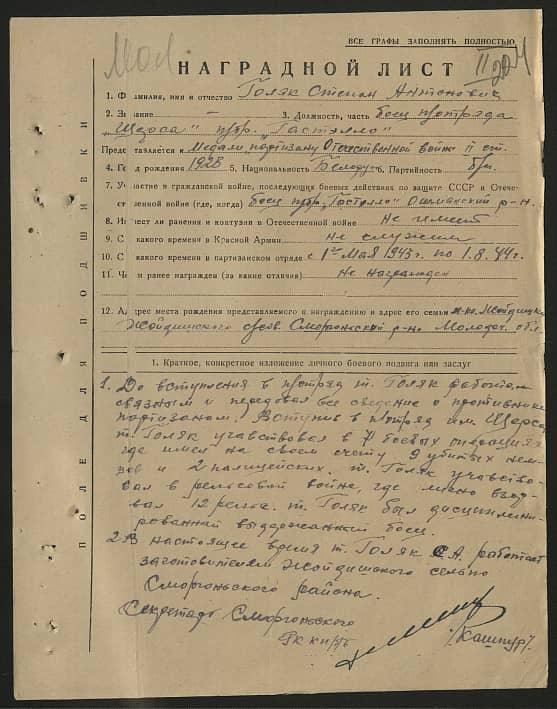 ВСЕ ГРАФЫ ЗАПОЛНЯТЬ ПОЛНОСТЬЮ
Мол
НАГРАДНОЙ ЛИСТ
1. Фамилия, имя и отчество Голяк Степан Антонович
2. Звание – 3. Должность, часть боец п/отряда
„Щорса" п/бр. „Гастелло"
Представляется к Медали партизану Отечественной войн II ст.
4. Год рождения 1928 5. Национальность Белорус 6. Партийность б/п.
7. Участие в гражданской войне, последующих боевых действиях по защите СССР и Отече-
ственной войне (где, когда) боец п/бр. „Гастелло" Ошмянский р-н.
8. Имеет ли ранения и контузия в Отечественной войне не имеет
9. С какого времени в Красной Армии не служил
10. С какого времени в партизанском отряде с 1го мая 1943г. по 1.8.44г.
11. Чем ранее награжден (за какие отличия) Не награжден
12. Адрес места рождения представляемого к награждению и адрес его семьи
Сморгонский р-но Молодеч. обл.
1. Краткое, конкретное изложение личного боевого подвига или заслуг
1. До вступления в п/отряд т. Голяк работал
связным и передовал все сведение о противнике
партизаном. Вступив в п/отряд им. Щорса
т. Голяк учавствовал в 7 боевых операциях
где имел на своем счету 9 убитых нем-
цов и 2 полицейских. т. Голяк учавство-
вал в рельсовой войне, где лично взор-
вал 12 рельс. т. Голяк был дисциплини-
рованный выдержанный боец.
2. В настоящее время т. Голяк С.А. работает
заготовителем Жойдишкого сельпо
Сморгоньского района.
Секретарь Сморгоньского
РК КП/б/Б
/Кашпур/
ПОЛЕ ДЛЯ ПОДШИВКИ